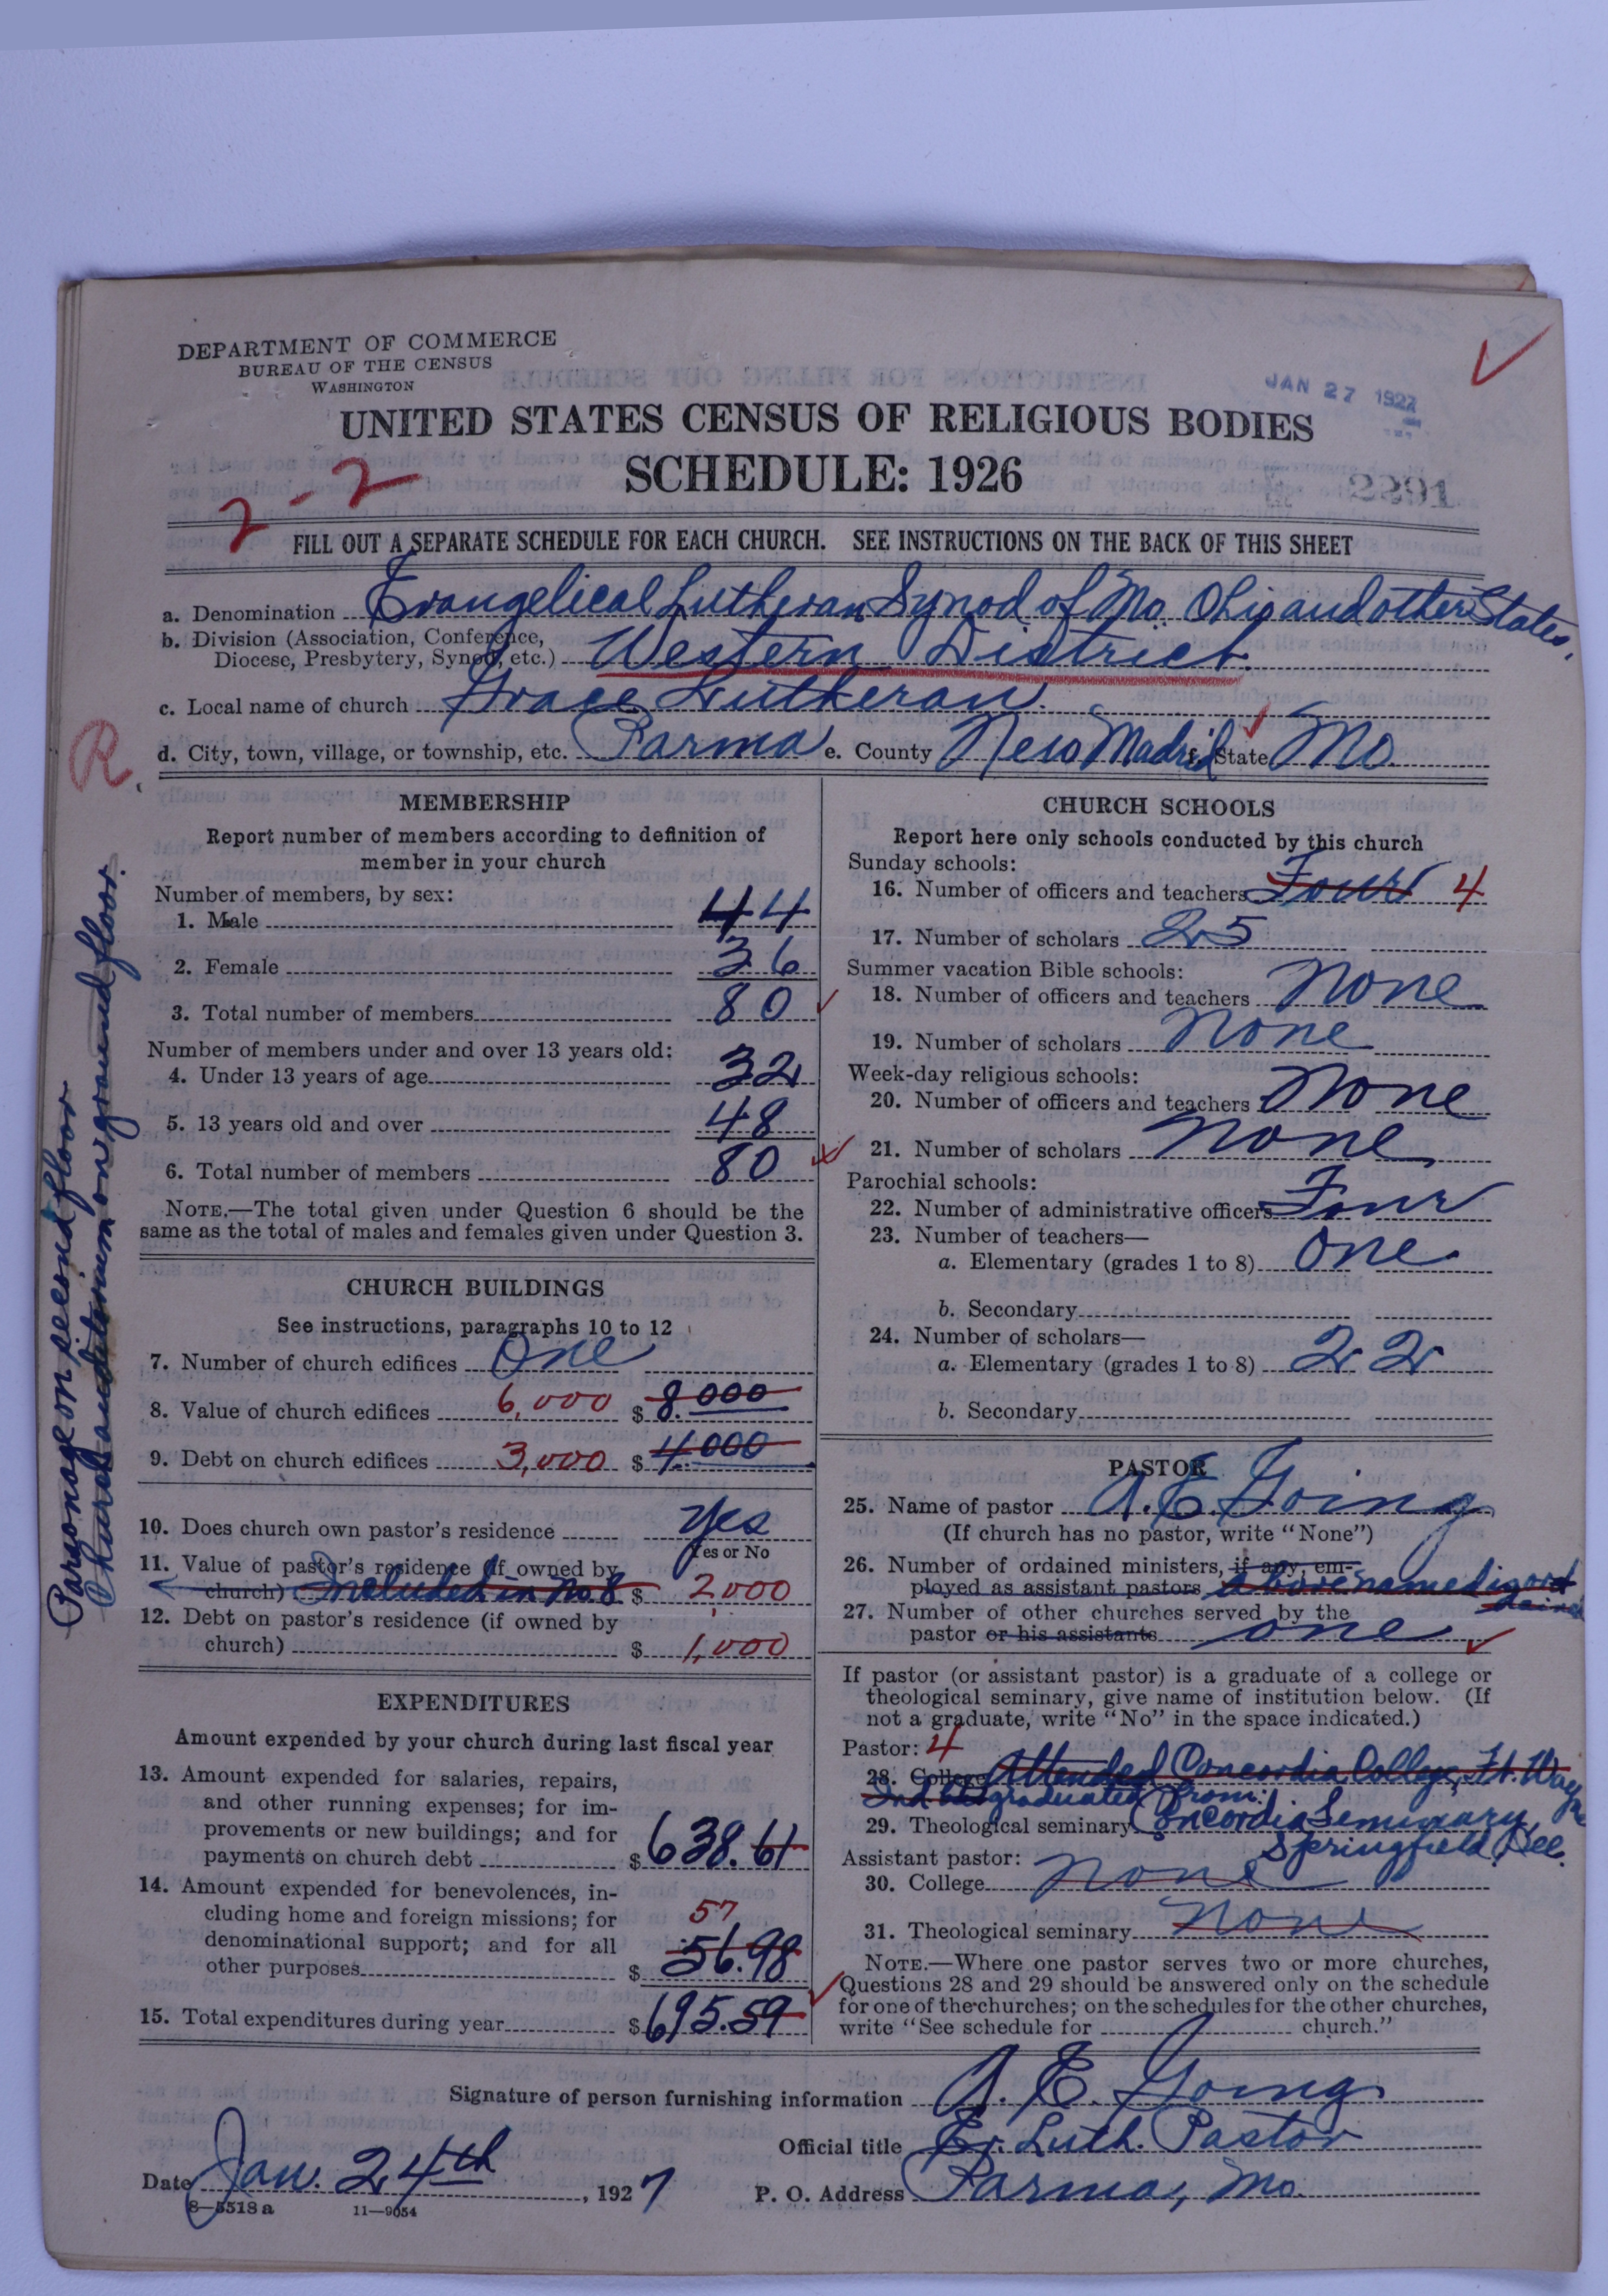 DEPARTMENT OF COMMERCE
BUREAU OF THE CENSUS
WASHINGTON
JAN 27 1927
UNITED STATES CENSUS OF RELIGIOUS BODIES
SCHEDULE: 1926
2-2
2291
FILL OUT A SEPARATE SCHEDULE FOR EACH CHURCH. SEE INSTRUCTIONS ON THE BACK OF THIS SHEET
a. Denomination Evangelical Lutheran Synod of Mo. Ohio and other States.
b. Division (Association, Conference,
Diocese, Presbytery, Synod, etc.) Western District.
c. Local name of church Grace Lutheran.
d. City, town, village, or township, etc. Parma e. County New Madrid f. State Mo.
R
Parsonage on second floor
Church auditorium on ground floor.
MEMBERSHIP
Report number of members according to definition of
member in your church
Number of members, by sex:
1. Male 44
2. Female 36
3. Total number of members 80
Number of members under and over 13 years old:
4. Under 13 years of age 32
5. 13 years old and over 48
6. Total number of members 80
NOTE.—The total given under Question 6 should be the
same as the total of males and females given under Question 3.
CHURCH BUILDINGS
See instructions, paragraphs 10 to 12
7. Number of church edifices One
8. Value of church edifices 6,000 $ 8.000
9. Debt on church edifices 3,000 $ 4.000
10. Does church own pastor's residence Yes
Yes or No
11. Value of pastor's residence (if owned by
church) Included in No. 8 $ 2,000
12. Debt on pastor's residence (if owned by
church) $ 1,000
EXPENDITURES
Amount expended by your church during last fiscal year
13. Amount expended for salaries, repairs,
and other running expenses; for im-
provements or new buildings; and for
payments on church debt $ 638.61
14. Amount expended for benevolences, in-
cluding home and foreign missions; for
57
denominational support; and for all
other purposes $ 56.98
15. Total expenditures during year $ 695.59
CHURCH SCHOOLS
Report here only schools conducted by this church
Sunday schools:
16. Number of officers and teachers Four 4
17. Number of scholars 25
Summer vacation Bible schools:
18. Number of officers and teachers None
19. Number of scholars None
Week-day religious schools:
20. Number of officers and teachers None
21. Number of scholars None
Parochial schools:
22. Number of administrative officers Four
23. Number of teachers—
a. Elementary (grades 1 to 8) One
b. Secondary
24. Number of scholars—
a. Elementary (grades 1 to 8) 22
b. Secondary
PASTOR
25. Name of pastor A. E. Going
(If church has no pastor, write "None")
26. Number of ordained ministers, if any, em-
ployed as assistant pastors above named is ordained
27. Number of other churches served by the
pastor or his assistants one
If pastor (or assistant pastor) is a graduate of a college or
theological seminary, give name of institution below. (If
not a graduate, write "No" in the space indicated.)
Pastor: 4
28. College Attended Concordia College, Ft. Wayne
Ind graduated from:
29. Theological seminary Concordia Seminary,
Springfield, Ill.
Assistant pastor:
30. College None
31. Theological seminary None
NOTE.—Where one pastor serves two or more churches,
Questions 28 and 29 should be answered only on the schedule
for one of the churches; on the schedules for the other churches,
write "See schedule for church."
Signature of person furnishing information A. E. Going
Official title Ev. Luth. Pastor
Date Jan. 24th, 1927 P. O. Address Parma, Mo.
8—5518 a 11—9054